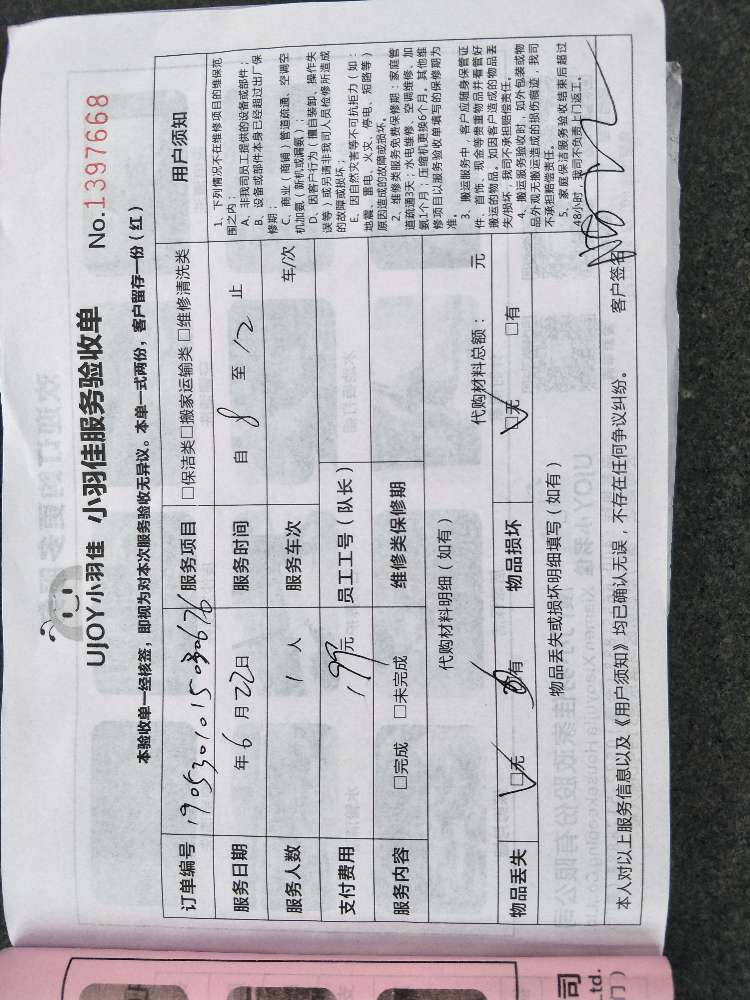 UJOY小羽佳 小羽佳服务验收单 No.1397668
本验收单一经核签，即视为对本次服务验收无异议。本单一式两份，客户留存一份（红）
订单编号 服务项目 □保洁类□搬家运输类 □维修清洗类
服务日期 年 6 月 22 日 服务时间 自 8 至 12 止
服务人数 1 人 服务车次 车/次
支付费用 199元 员工工号（队长）
服务内容 □完成 □未完成 维修类保修期
代购材料明细（如有） 代购材料总额： 元
物品丢失 □无 有 物品损坏 □无 □有
物品丢失或损坏明细填写（如有）
用户须知
1、下列情况不在维修项目的维保范
围之内：
A、非我司员工提供的设备或部件；
B、设备或部件本身已经超过出厂保
修期；
C、商业（商铺）管道疏通，空调空
机加氨（新机或漏氨）；
D、因客户行为（擅自装卸、操作失
误等）或另请非我司人员检修所造成
的故障或损坏；
E、因自然灾害等不可抗拒力（如：
地震、雷电、火灾、停电、短路等）
原因造成的故障或损坏。
2、维修类服务免费保修期：家庭管
道疏通3天；水电维修、空调维修、加
氨1个月；压缩机更换6个月。其他维
修项目以服务验收单填写的保修期为
准。
3、搬运服务中，客户应随身保管证
件、首饰、现金等贵重物品并看管好
搬运的物品，如因客户造成的物品丢
失/损坏，我司不承担赔偿责任。
4、搬运服务验收时，如外包装或物
品外观无搬运造成的损伤痕迹，我司
不承担赔偿责任。
5、家庭保洁服务验收结束后超过
48小时，我司不负责上门返工。
本人对以上服务信息以及《用户须知》均已确认无误，不存在任何争议纠纷。 客户签名
司
td.
门）